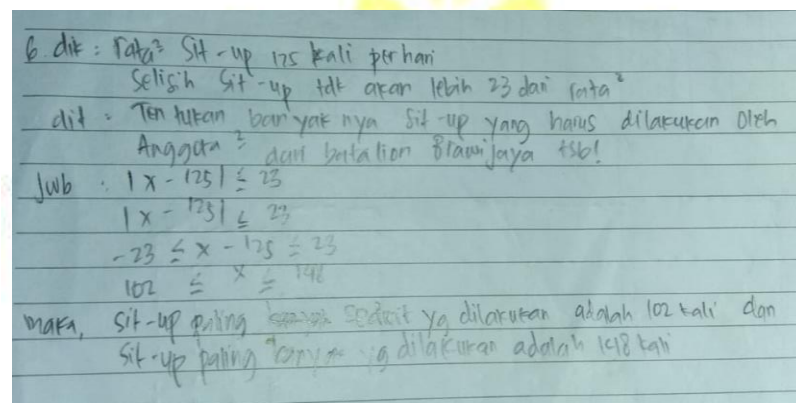 6. dik : rata² Sit-up 125 kali perhari
Selisih Sit-up tdk akan lebih 23 dari rata²
dit : Tentukan banyaknya Sit-up yang harus dilakukan oleh
Anggota² dari batalion Brawijaya tsb!
Jwb : |x - 125| ≤ 23
|x - 125| ≤ 23
-23 ≤ x - 125 ≤ 23
102 ≤ x ≤ 148
maka, Sit-up paling sedikit yg dilakukan adalah 102 kali dan
Sit-up paling banyak yg dilakukan adalah 148 kali